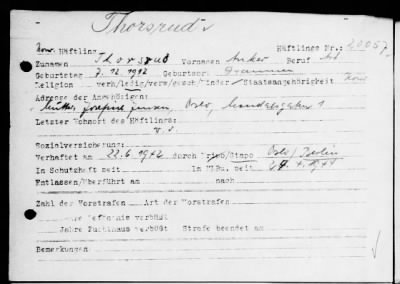 Thorsrud
Häftling Häftlings Nr.:
Zunamen Thorsrud Vornamen Anker Beruf
Geburtstag 7.12.1912 Geburtsort Drammen
Religion verh/ledig/verw/gesch/Kinder Staatsangehörigkeit Norw
Adresse der Angehörigen:
Mutter, Josefine Jensen, Oslo, 1
Letzter Wohnort des Häftlings:
Sozialversicherung:
Verhaftet am 22.6.1942 durch Stapo Oslo/Berlin
In Schutzhaft seit in seit
Entlassen/Überführt am nach
Zahl der Vorstrafen Art der Vorstrafen
Jahre Gefängnis verbüßt
Jahre Zuchthaus verbüßt Strafe beendet am
Bemerkungen